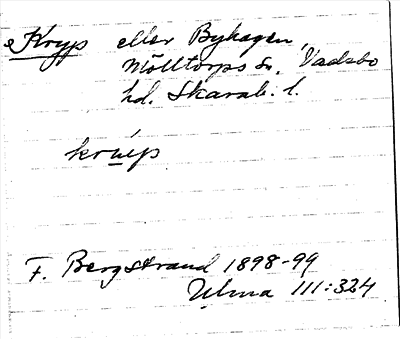 Kryp eller Byhagen,
Mölltorps sn, Vadsbo
hd. Skarab. l.
kruip
F. Bergstrand 1898-99
Ulma 111:324